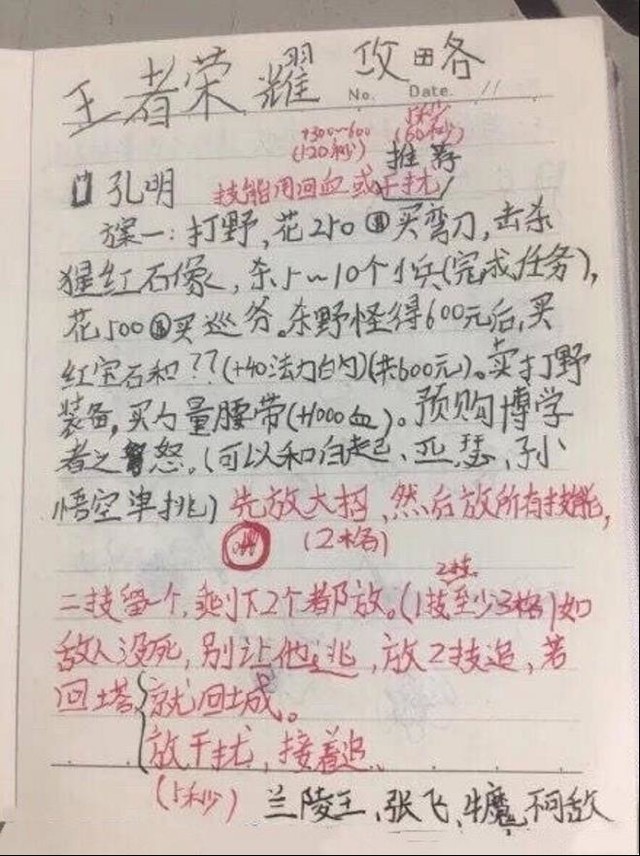 王者荣耀 攻略
No. Date. 11
+300~600 5秒
(120秒) (60秒)
推荐
孔明 技能用回血或干扰
方案一:打野,花250 买弯刀,击杀
猩红石像,杀5~10个小兵(完成任务),
花500 买巡务。杀野怪得600元后,买
红宝石和??(+40法力白勺)(共600元)。卖打野
装备,买力量腰带(+1000血)。预购博学
者之怒。(可以和白起、亚瑟、孙
悟空单挑)先放大招,然后放所有技能,
(2格)
2技
二技留一个,剩下2个都放。(1技至少3格)如
敌人没死,别让他逃,放2技追,若
回塔 就回城。
放干扰,接着追
(5秒) 兰陵王、张飞、牛魔 不可敌